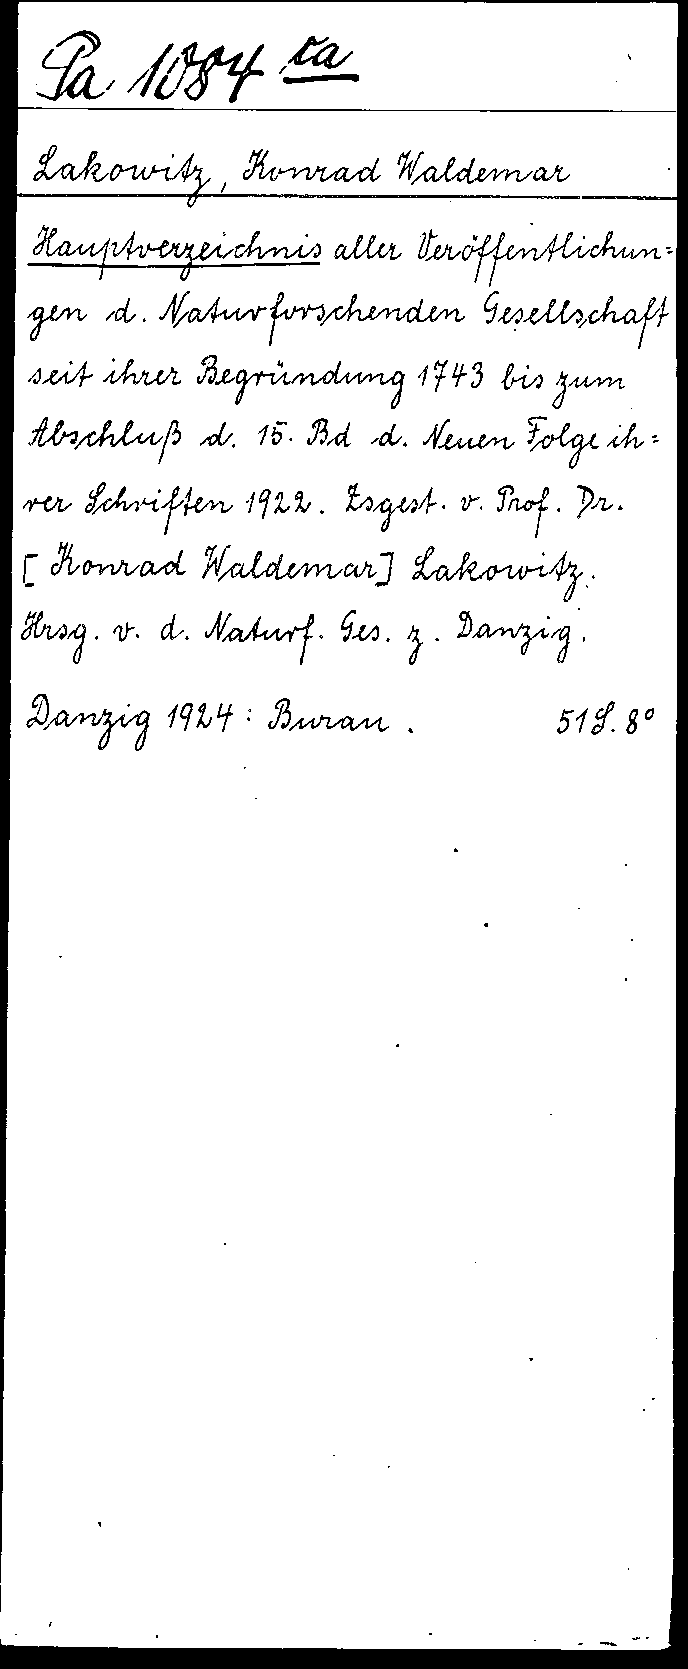 Pa 1084 ra
Lakowitz, Konrad Waldemar
Hauptverzeichnis aller Veröffentlichun=
gen d. Naturforschenden Gesellschaft
seit ihrer Begründung 1743 bis zum
Abschluß d. 15. Bd d. Neuen Folge ih=
rer Schriften 1922. Zsgest. v. Prof. Dr.
[Konrad Waldemar] Lakowitz.
Hrsg. v. d. Naturf. Ges. z. Danzig.
Danzig 1924: Burau. 51 S. 8°